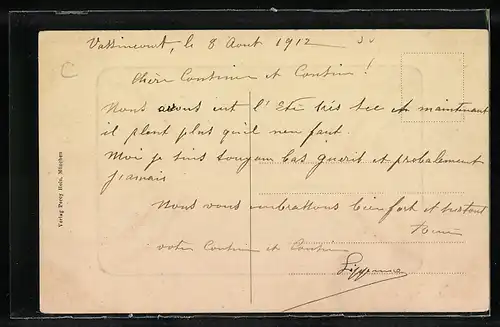 Vassincourt, le 8 Aout 1912
Chère Cousine et Cousin!
Nous avons eut l'Eté très sec et maintenant
il pleut plus qu'il nen faut.
Moi je suis toujour bas guerit et probalement
jiamais
Nous vous embrassons bien fort et surtout
votre Cousin et Cousine
Verlag Percy Hein, München